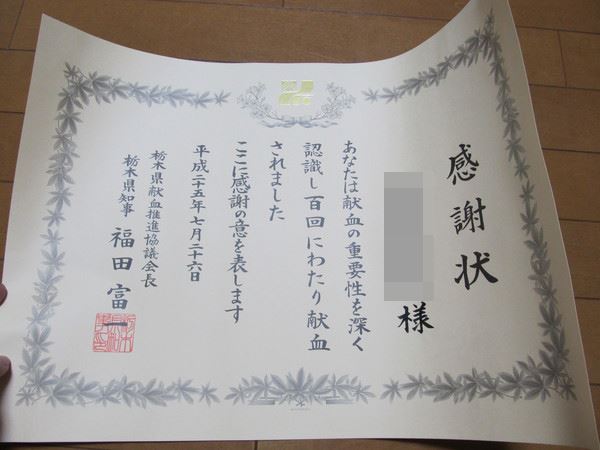 感謝状
様
あなたは献血の重要性を深く
認識し百回にわたり献血
されました
ここに感謝の意を表します
平成二十五年七月二十六日
栃木県献血推進協議会長
栃木県知事 福田富一